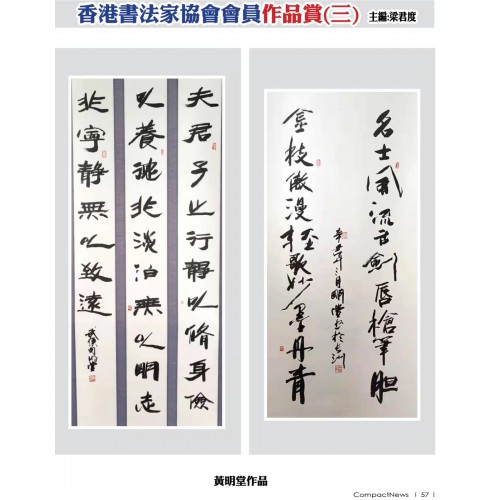 香港書法家協會會員作品賞(三) 主編:梁君度
夫君子之行靜以脩身儉
以養德非淡泊無以明志
非寧靜無以致遠
明堂
名士風流舌劍唇槍筆胆
金枝傲漫轻歌妙墨丹青
辛丑年 月明堂书於 洲
黃明堂作品
CompactNews | 57 |